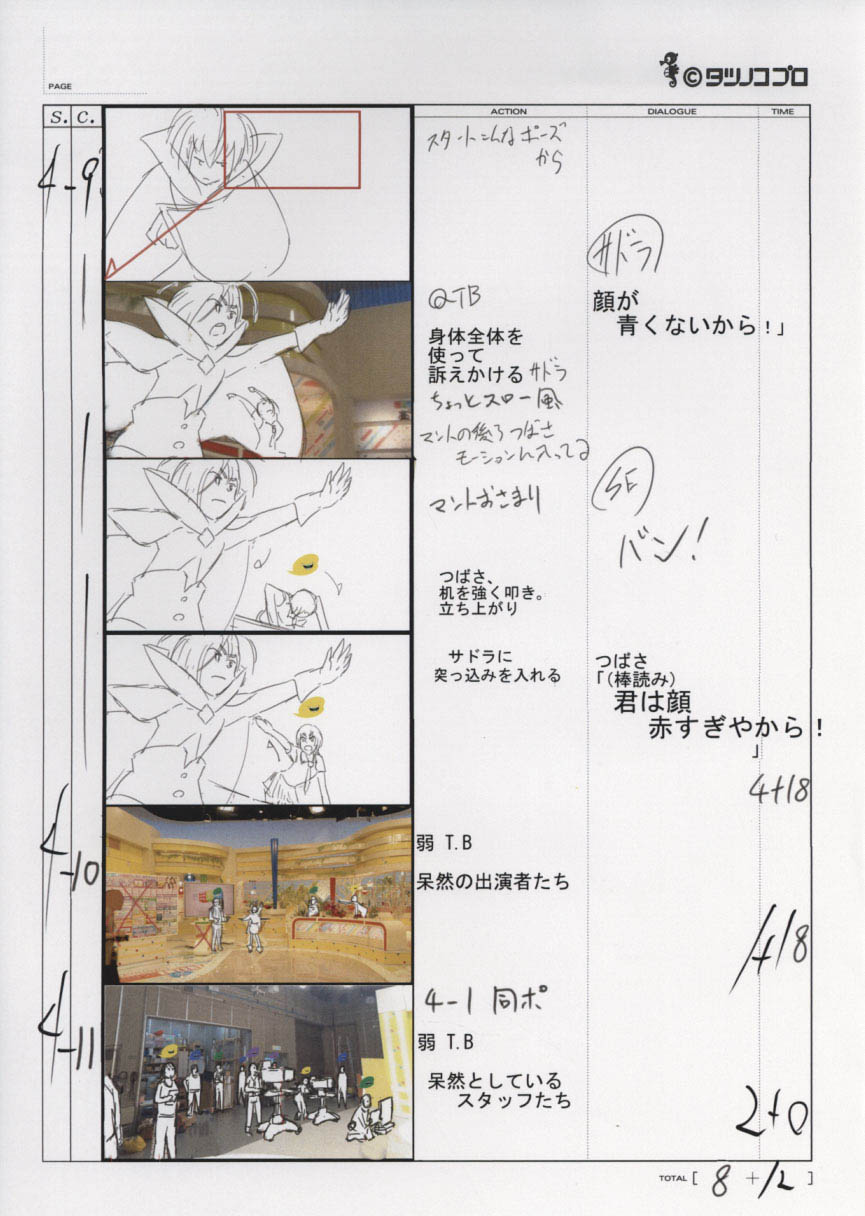 PAGE
©タツノコプロ
S. C. ACTION DIALOGUE TIME
4-9
スタートこんなポーズ
から
サドラ
QTB
顔が
青くないから！」
身体全体を
使って
訴えかけるサドラ
ちょっとスロー風
マントの後ろつばさ
モーションに入ってる
マントおさまり
SE
バン！
つばさ、
机を強く叩き。
立ち上がり
サドラに
突っ込みを入れる
つばさ
「（棒読み）
君は顔
赤すぎやから！
」
4+18
4-10
弱 T.B
呆然の出演者たち
1+18
4-11
4-1 同ポ
弱 T.B
呆然としている
スタッフたち
2+0
TOTAL [ 8 + 12 ]